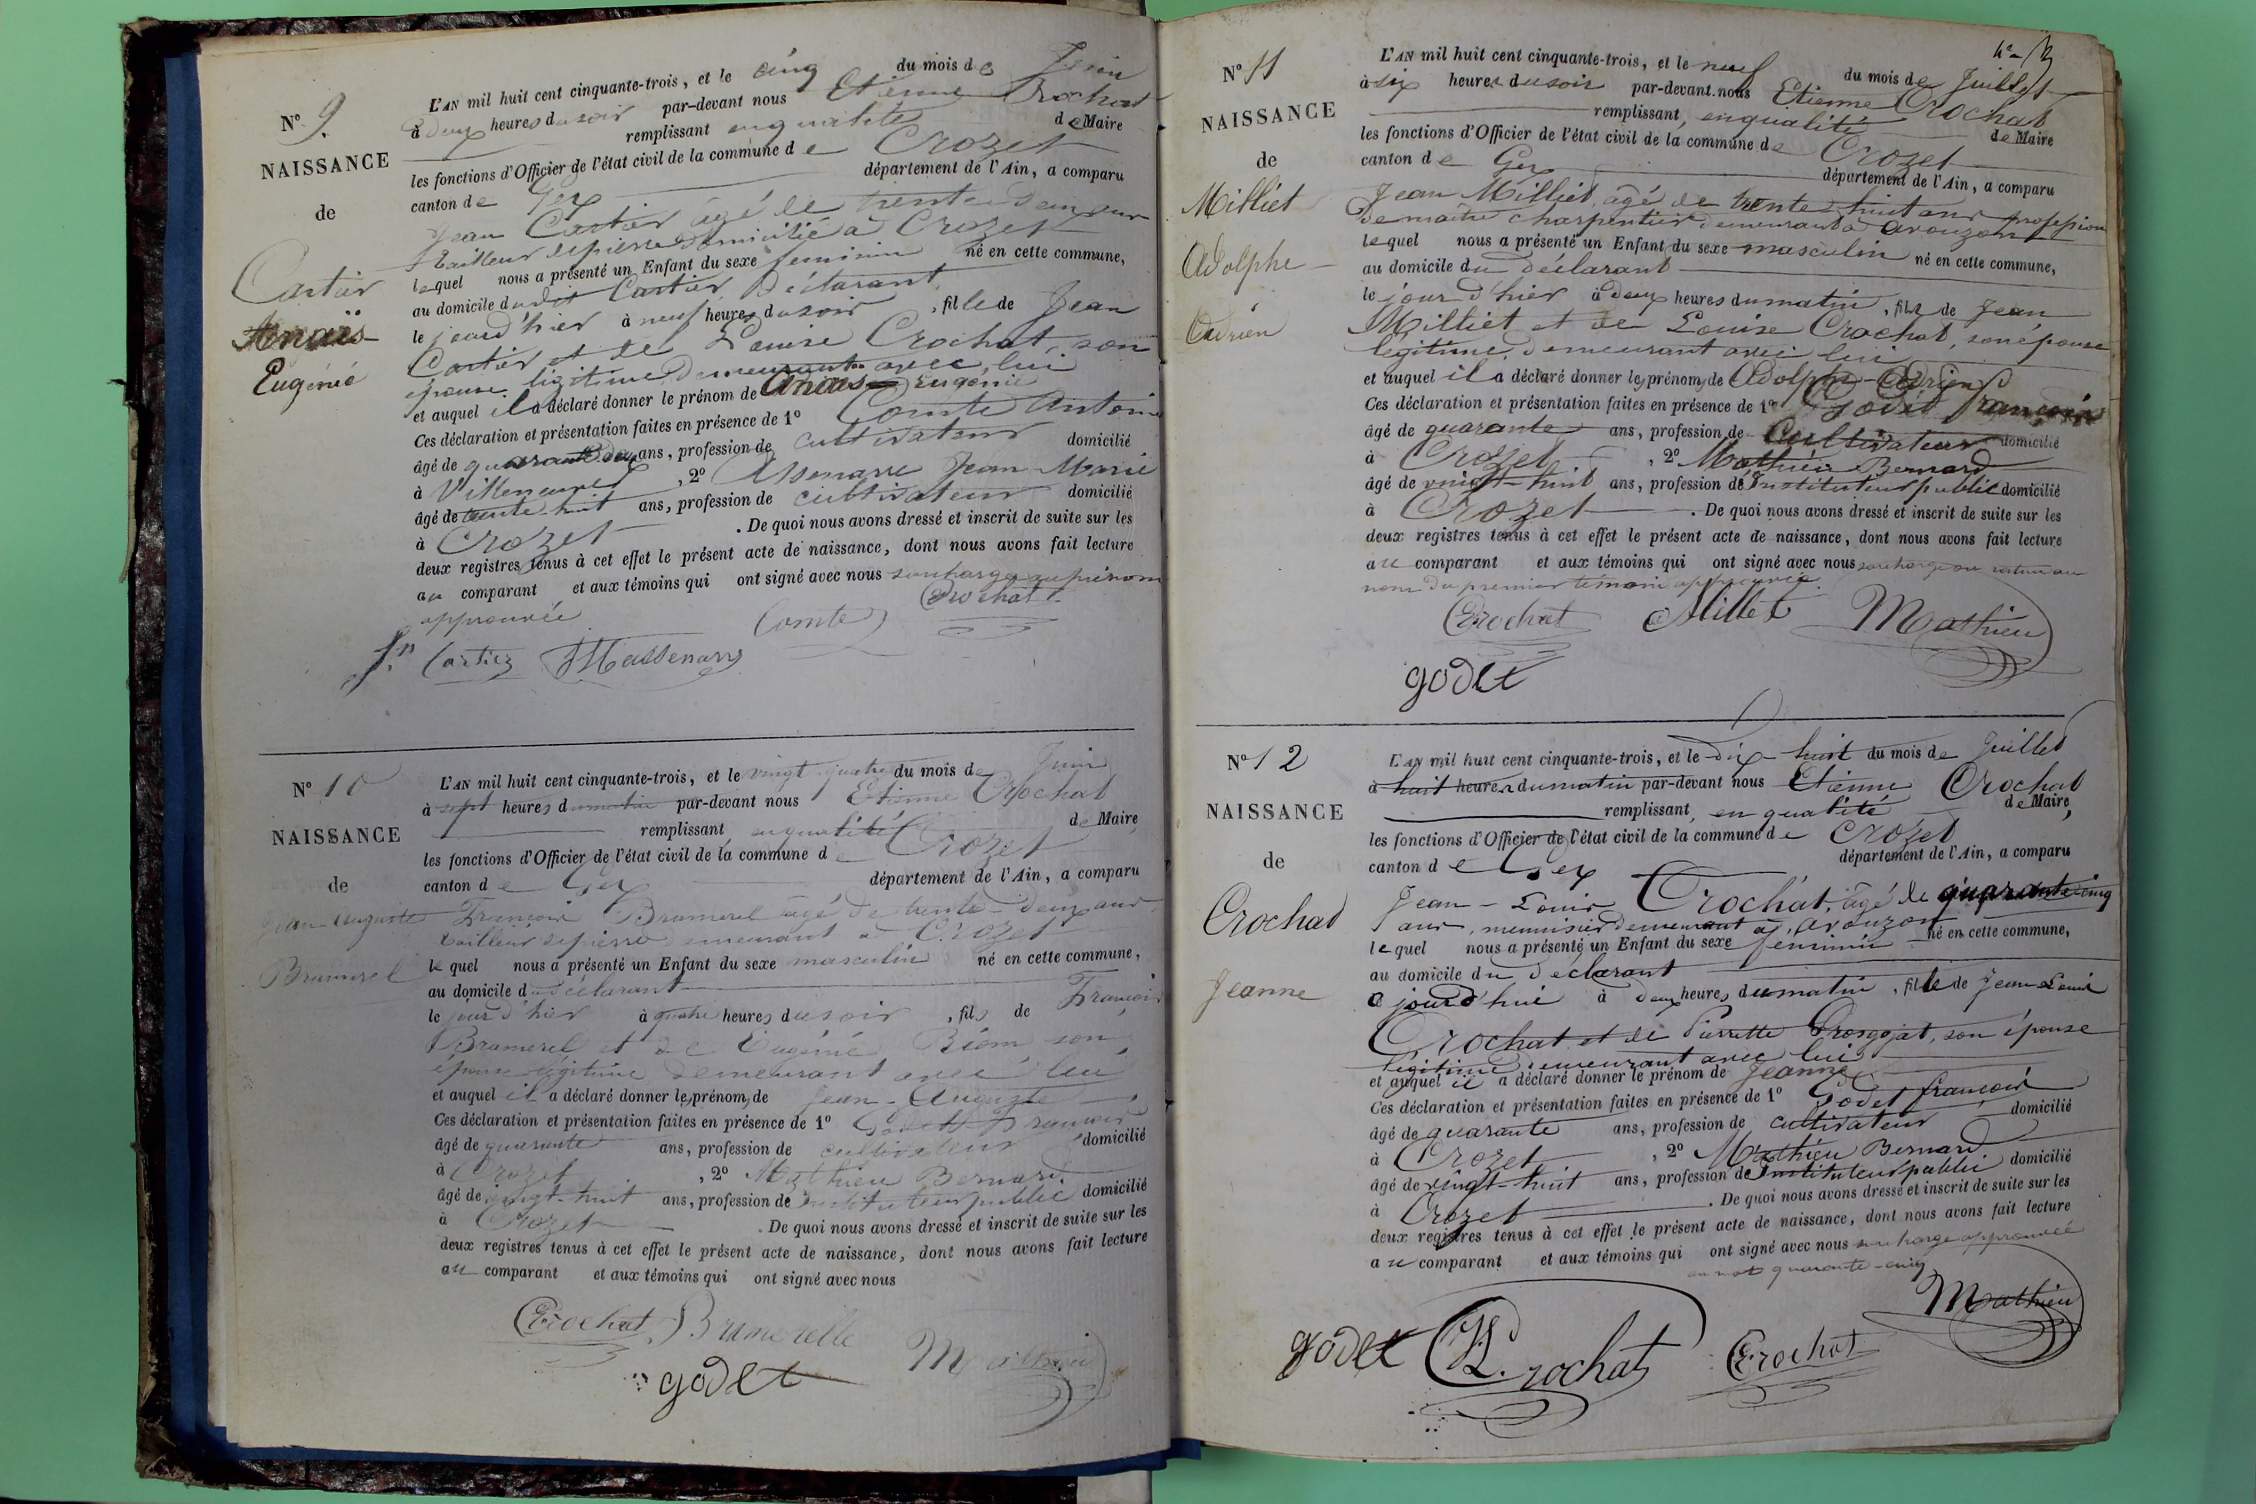 N° 9.
NAISSANCE
de
Cartier
Anaïs
Eugénie
L'AN mil huit cent cinquante-trois, et le cinq du mois de Juin
à deux heures du soir par-devant nous Etienne Crochat
remplissant en qualité de Maire
les fonctions d'Officier de l'état civil de la commune de Crozet
canton de Gex département de l'Ain, a comparu
Jean Cartier âgé de trente deux ans
tailleur de pierre domicilié à Crozet
lequel nous a présenté un Enfant du sexe féminin né en cette commune,
au domicile dudit Cartier Déclarant
le jour d'hier à neuf heures du soir, fille de Jean
Cartier et de Louise Crochat, son
épouse légitime demeurant avec lui
et auquel il a déclaré donner le prénom de Anaïs Eugénie
Ces déclaration et présentation faites en présence de 1° Comte Antoine
âgé de quarante deux ans, profession de cultivateur domicilié
à Villeneuve, 2° Massenare Jean Marie
âgé de trente huit ans, profession de cultivateur domicilié
à Crozet. De quoi nous avons dressé et inscrit de suite sur les
deux registres tenus à cet effet le présent acte de naissance, dont nous avons fait lecture
au comparant et aux témoins qui ont signé avec nous surcharge au prénom
approuvée
Crochat
Comte
Jn Cartier Massenare
N° 10
NAISSANCE
de
Jean Auguste
Bramerel
L'AN mil huit cent cinquante-trois, et le vingt quatre du mois de Juin
à sept heures du matin par-devant nous Etienne Crochat
remplissant en qualité de Maire
les fonctions d'Officier de l'état civil de la commune de Crozet
canton de Gex département de l'Ain, a comparu
François Bramerel âgé de trente-deux ans
tailleur de pierre demeurant à Crozet
lequel nous a présenté un Enfant du sexe masculin né en cette commune,
au domicile du déclarant
le jour d'hier à quatre heures du soir, fils de François
Bramerel et de Eugénie son
épouse légitime demeurant avec lui
et auquel il a déclaré donner les prénoms de Jean-Auguste
Ces déclaration et présentation faites en présence de 1° Godet François
âgé de quarante ans, profession de cultivateur domicilié
à Crozet, 2° Mathieu Bernard
âgé de vingt-huit ans, profession de Instituteur public domicilié
à Crozet. De quoi nous avons dressé et inscrit de suite sur les
deux registres tenus à cet effet le présent acte de naissance, dont nous avons fait lecture
au comparant et aux témoins qui ont signé avec nous
Crochat Bramerelle Mathieu
godet
N° 11
NAISSANCE
de
Milliet
Adolphe
Adrien
L'AN mil huit cent cinquante-trois, et le neuf du mois de Juillet
à six heures du soir par-devant nous Etienne Crochat
remplissant en qualité de Maire
les fonctions d'Officier de l'état civil de la commune de Crozet
canton de Gex département de l'Ain, a comparu
Jean Milliet, âgé de trente huit ans profession
de maître charpentier demeurant à avouzon
lequel nous a présenté un Enfant du sexe masculin né en cette commune,
au domicile du déclarant
le jour d'hier à deux heures du matin, fils de Jean
Milliet et de Louise Crochat, son épouse
légitime, demeurant avec lui
et auquel il a déclaré donner les prénoms de Adolphe-Adrien
Ces déclaration et présentation faites en présence de 1° Godet françois
âgé de quarante ans, profession de Cultivateur domicilié
à Crozet, 2° Mathieu Bernard
âgé de vingt-huit ans, profession de Instituteur public domicilié
à Crozet. De quoi nous avons dressé et inscrit de suite sur les
deux registres tenus à cet effet le présent acte de naissance, dont nous avons fait lecture
au comparant et aux témoins qui ont signé avec nous surcharge ou rature au
nom du premier témoin approuvée.
Crochat Milliet Mathieu
godet
N° 12
NAISSANCE
de
Crochat
Jeanne
L'AN mil huit cent cinquante-trois, et le dix-huit du mois de Juillet
à huit heures du matin par-devant nous Etienne Crochat
remplissant en qualité de Maire,
les fonctions d'Officier de l'état civil de la commune de Crozet
canton de Gex département de l'Ain, a comparu
Jean-Louis Crochat, âgé de quarante cinq
ans, menuisier demeurant à avouzon
lequel nous a présenté un Enfant du sexe féminin né en cette commune,
au domicile du déclarant
ce jourd'hui à deux heures du matin, fille de Jean Louis
Crochat et de Pierrette Grosgojat, son épouse
légitime demeurant avec lui
et auquel il a déclaré donner le prénom de Jeanne
Ces déclaration et présentation faites en présence de 1° Godet françois
âgé de quarante ans, profession de cultivateur domicilié
à Crozet, 2° Mathieu Bernard
âgé de vingt-huit ans, profession de Instituteur public domicilié
à Crozet. De quoi nous avons dressé et inscrit de suite sur les
deux registres tenus à cet effet le présent acte de naissance, dont nous avons fait lecture
au comparant et aux témoins qui ont signé avec nous surcharge approuvée
au mot quarante-cinq
Mathieu
godet JL. Crochat Crochat